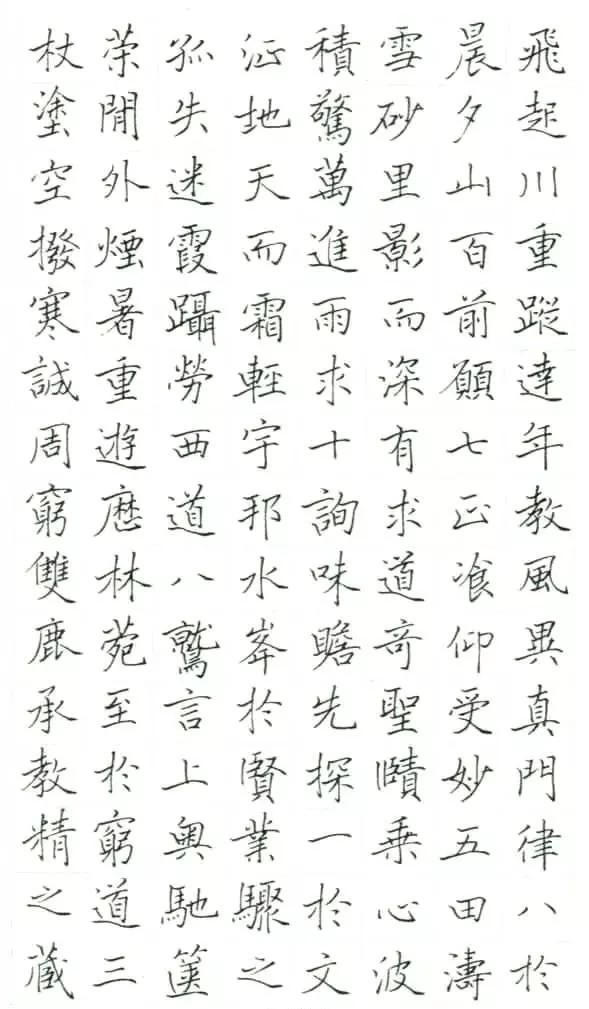 杖策孤征積雪晨飛
塗閒失地驚砂夕起
空外迷天萬里山川
撥煙霞而進影百重
寒暑躡霜雨而前蹤
誠重勞輕求深願達
周遊西宇十有七年
窮歷道邦詢求正教
雙林八水味道飡風
鹿菀鷲峯瞻奇仰異
承至言於先聖受真
教於上賢探賾妙門
精窮奧業一乘五律
之道馳驟於心田八
藏三篋之文波濤於